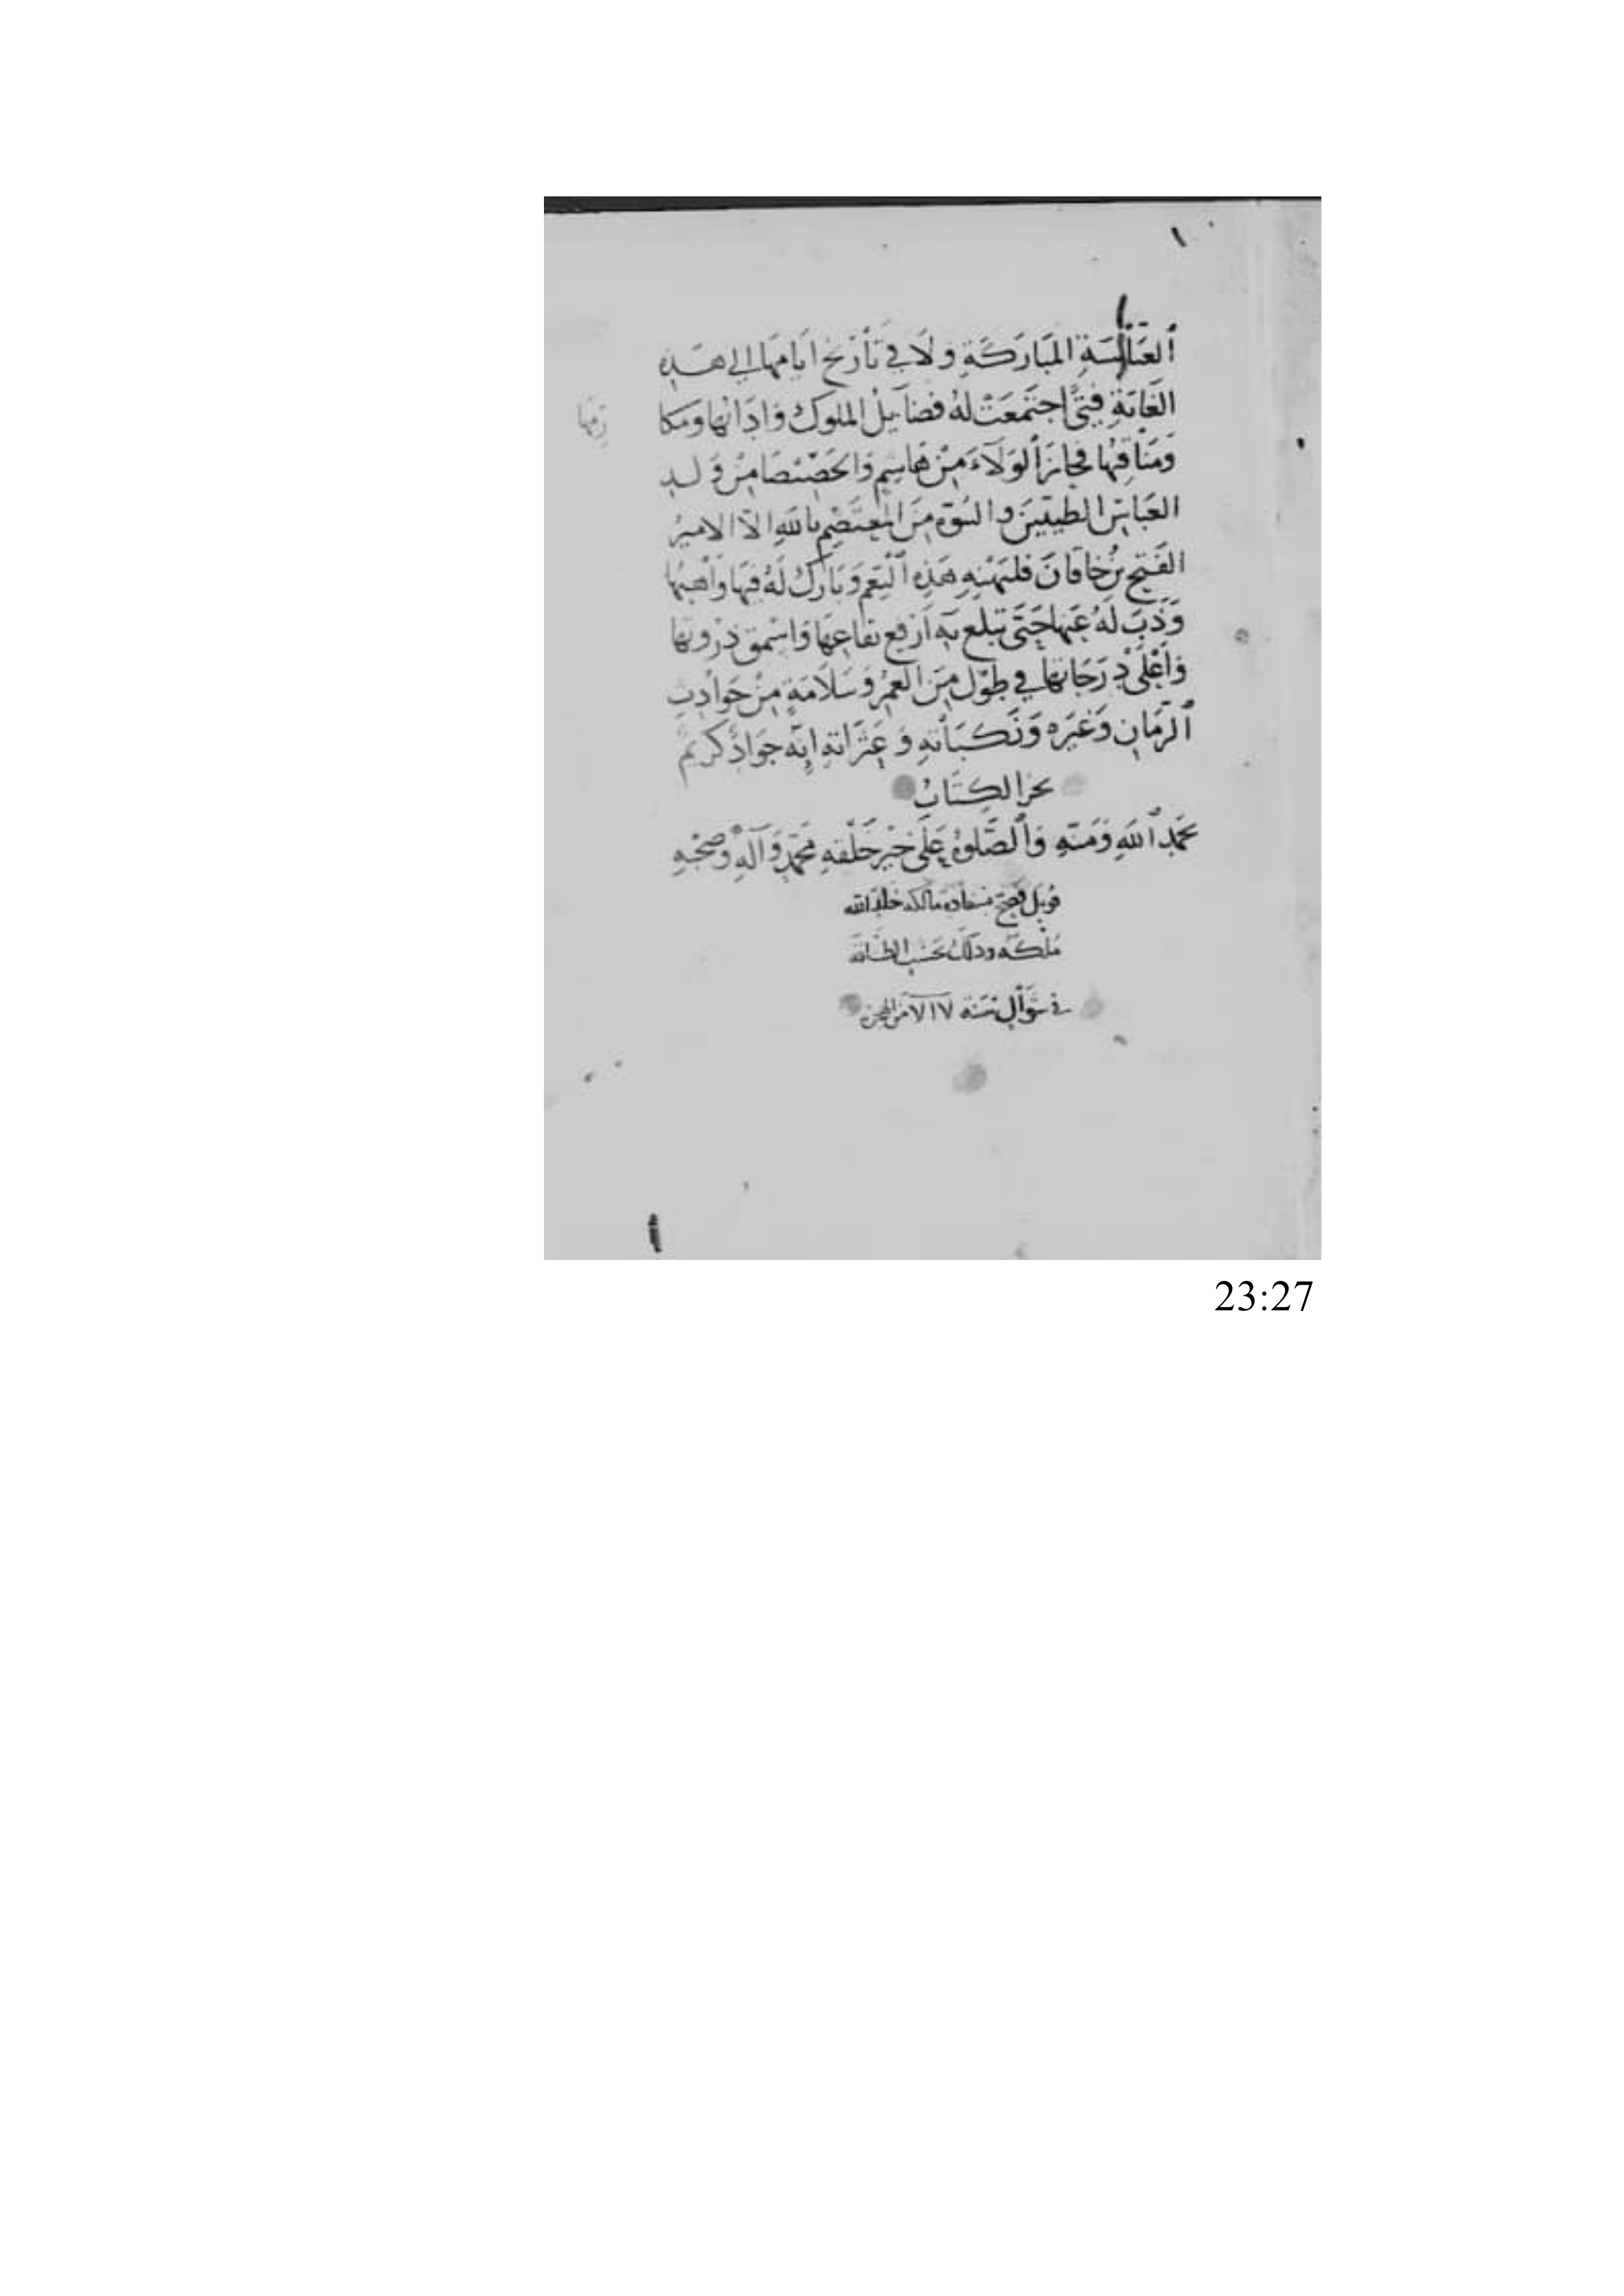 ١
العَبَّاسَةِ المُبَارَكَةِ وَلَا فِي تَأْرِيخِ أيَامِهَا إلي هَذِهِ
الغَايَةِ فِتىً اجتَمَعَتْ لهُ فضَآيلُ الملُوك وَادَابُهَا وَمَكا
رِمُهَا
وَمَنَاقِبُهَا فحَازَ الوَلَآءَ مِنْ هَاشِمٍ وَالخَصّيْصَا مِنْ وَلَدِ
العَبَاسِ الطيبِينَ والبُنُوّة مِنَ المُعتَصِمِ بالله الاّ الامِيرُ
الفَتحِ بنُ خاقانَ فلتَهْنِهِ هَذِهِ النِّعَم وَبَارَكَ لَهُ فِيهَا وَاهِبُهَا
وَذَبَّ لَهُ عَنهَا حَتَى تبلغ بِهِ ارفع بقاعِهَا وَاسْمَق ذروتها
وَاعْلَى دَرَجَاتِهَا فِي طُوْل مِنَ العُمْرِ وَسَلَامَةٍ مِنْ حَوَادِثِ
الزَمَانِ وَغِيَرِهِ وَنَكبَاتِهِ وَعَثَرَاتِهِ إنّهُ جوَادٌ كريمٌ
نجز الكِتَابُ
بحَمدِ اللهِ وَمَنّهِ وَالصَّلوةُ عَلَى خيْرِ خَلْقِهِ مُحَمّدٍ وَآلِهِ وَصَحْبِهِ
قُوبل فصح بسعادة مالكه خلد الله
مُلكه وذلك بحَسَبِ الطاقة
في شوَّال سَنة ٧١٧ من الهجرة
23:27